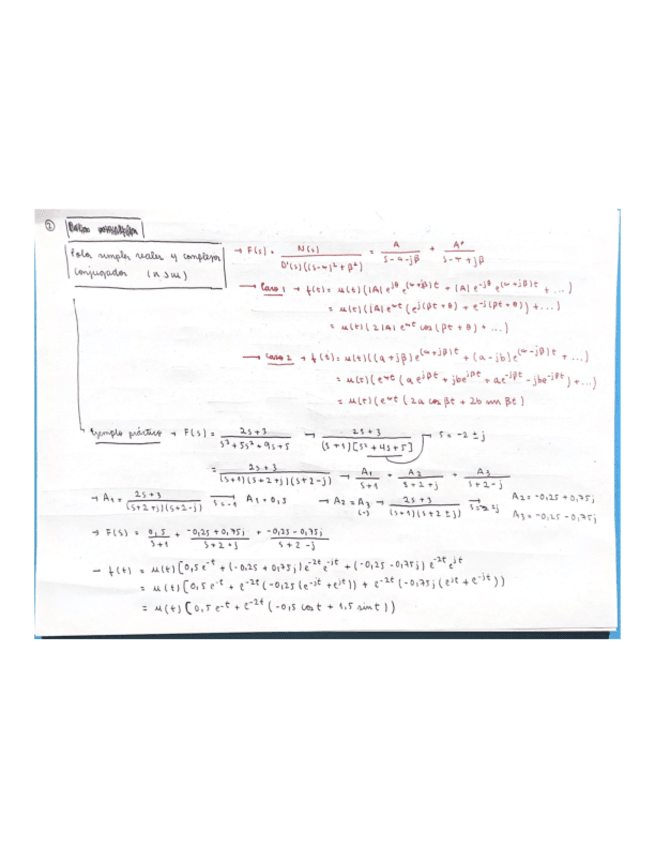 ②
Polos simples reales y complejos
conjugados (n > m)
→ F(s) = N(s) / D'(s)((s-α)²+β²) = A / s-α-jβ + A* / s-α+jβ
→ Caso 1 → f(t) = u(t)(|A|e^jθ e^(α+jβ)t + |A|e^-jθ e^(α-jβ)t + ...)
= u(t)(|A|e^αt (e^j(βt+θ) + e^-j(βt+θ)) + ...)
= u(t)(2|A|e^αt cos(βt+θ) + ...)
→ Caso 2 → f(t) = u(t)((a+jβ)e^(α+jβ)t + (a-jb)e^(α-jβ)t + ...)
= u(t)(e^αt (ae^jβt + jbe^jβt + ae^-jβt - jbe^-jβt) + ...)
= u(t)(e^αt (2a cos βt + 2b sin βt)
Ejemplo práctico → F(s) = 2s+3 / s³+5s²+9s+5 → 2s+3 / (s+1)[s²+4s+5] → s = -2 ± j
= 2s+3 / (s+1)(s+2+j)(s+2-j) → A₁ / s+1 + A₂ / s+2+j + A₃ / s+2-j
→ A₁ = 2s+3 / (s+2+j)(s+2-j) → s=-1 A₁ = 0,5 → A₂ = A₃ (-j) → 2s+3 / (s+1)(s+2±j) → A₂ = -0,25 + 0,75j
A₃ = -0,25 - 0,75j
→ F(s) = 0,5 / s+1 + -0,25+0,75j / s+2+j + -0,25-0,75j / s+2-j
→ f(t) = u(t)[0,5e^-t + (-0,25+0,75j)e^-2t e^-jt + (-0,25-0,75j)e^-2t e^jt
= u(t)[0,5e^-t + e^-2t(-0,25(e^-jt + e^jt)) + e^-2t(-0,75j(e^jt + e^-jt))
= u(t)(0,5e^-t + e^-2t(-0,5 cos t + 1,5 sin t))